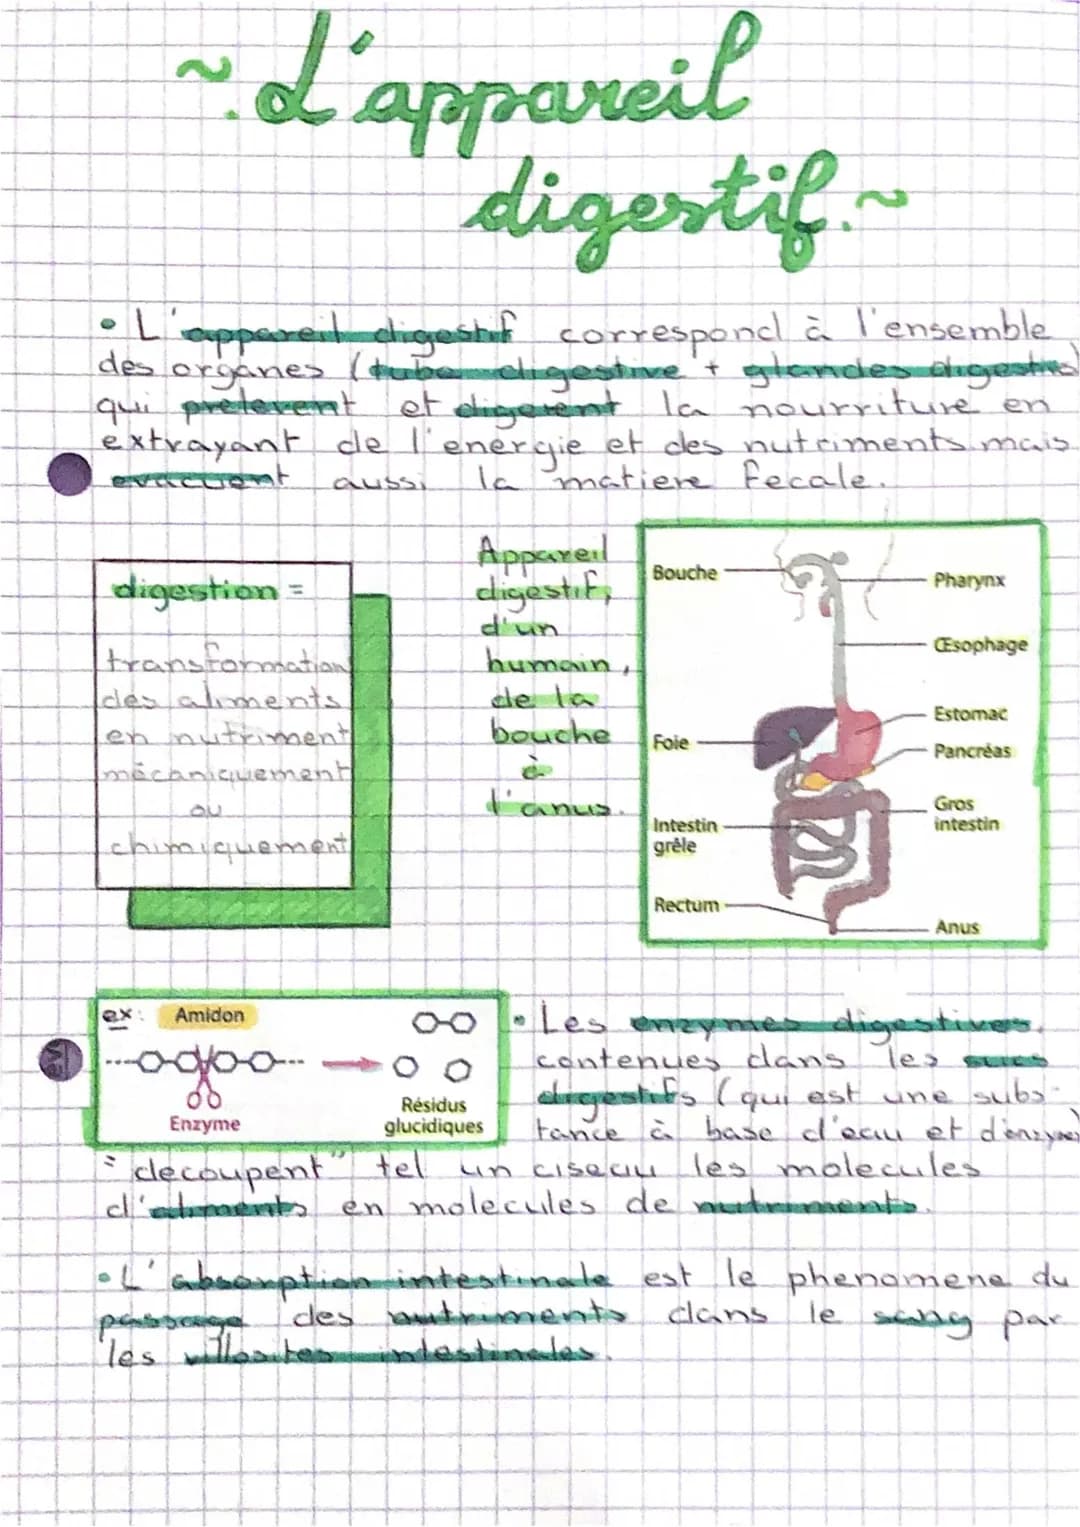 ~. L'appareil
digestif. ~
• L'appareil digestif correspond à l'ensemble
des organes (tube digestive + glandes digestive
qui prelevent et digerent la nourriture en
extrayant de l'energie et des nutriments mais
evacuent aussi la matiere fecale.
digestion =
transformation
des aliments
en nutriment
mécaniquement
ou
chimiquement
Appareil
digestif,
d'un
humain,
de la
bouche
à
l'anus.
Bouche
Pharynx
Œsophage
Estomac
Foie
Pancréas
Gros
intestin
Intestin
grêle
Rectum
Anus
ex: Amidon
Enzyme
Résidus
glucidiques
• Les enzymes digestives.
contenues dans les sucs
digestifs (qui est une subs-
tance à base d'eau et d'enzyme)
"decoupent" tel un ciseau les molecules
d'aliments en molecules de nutriments.
• L'absorption intestinale est le phenomene du
passage des nutriments dans le sang par
les villosites intestinales.